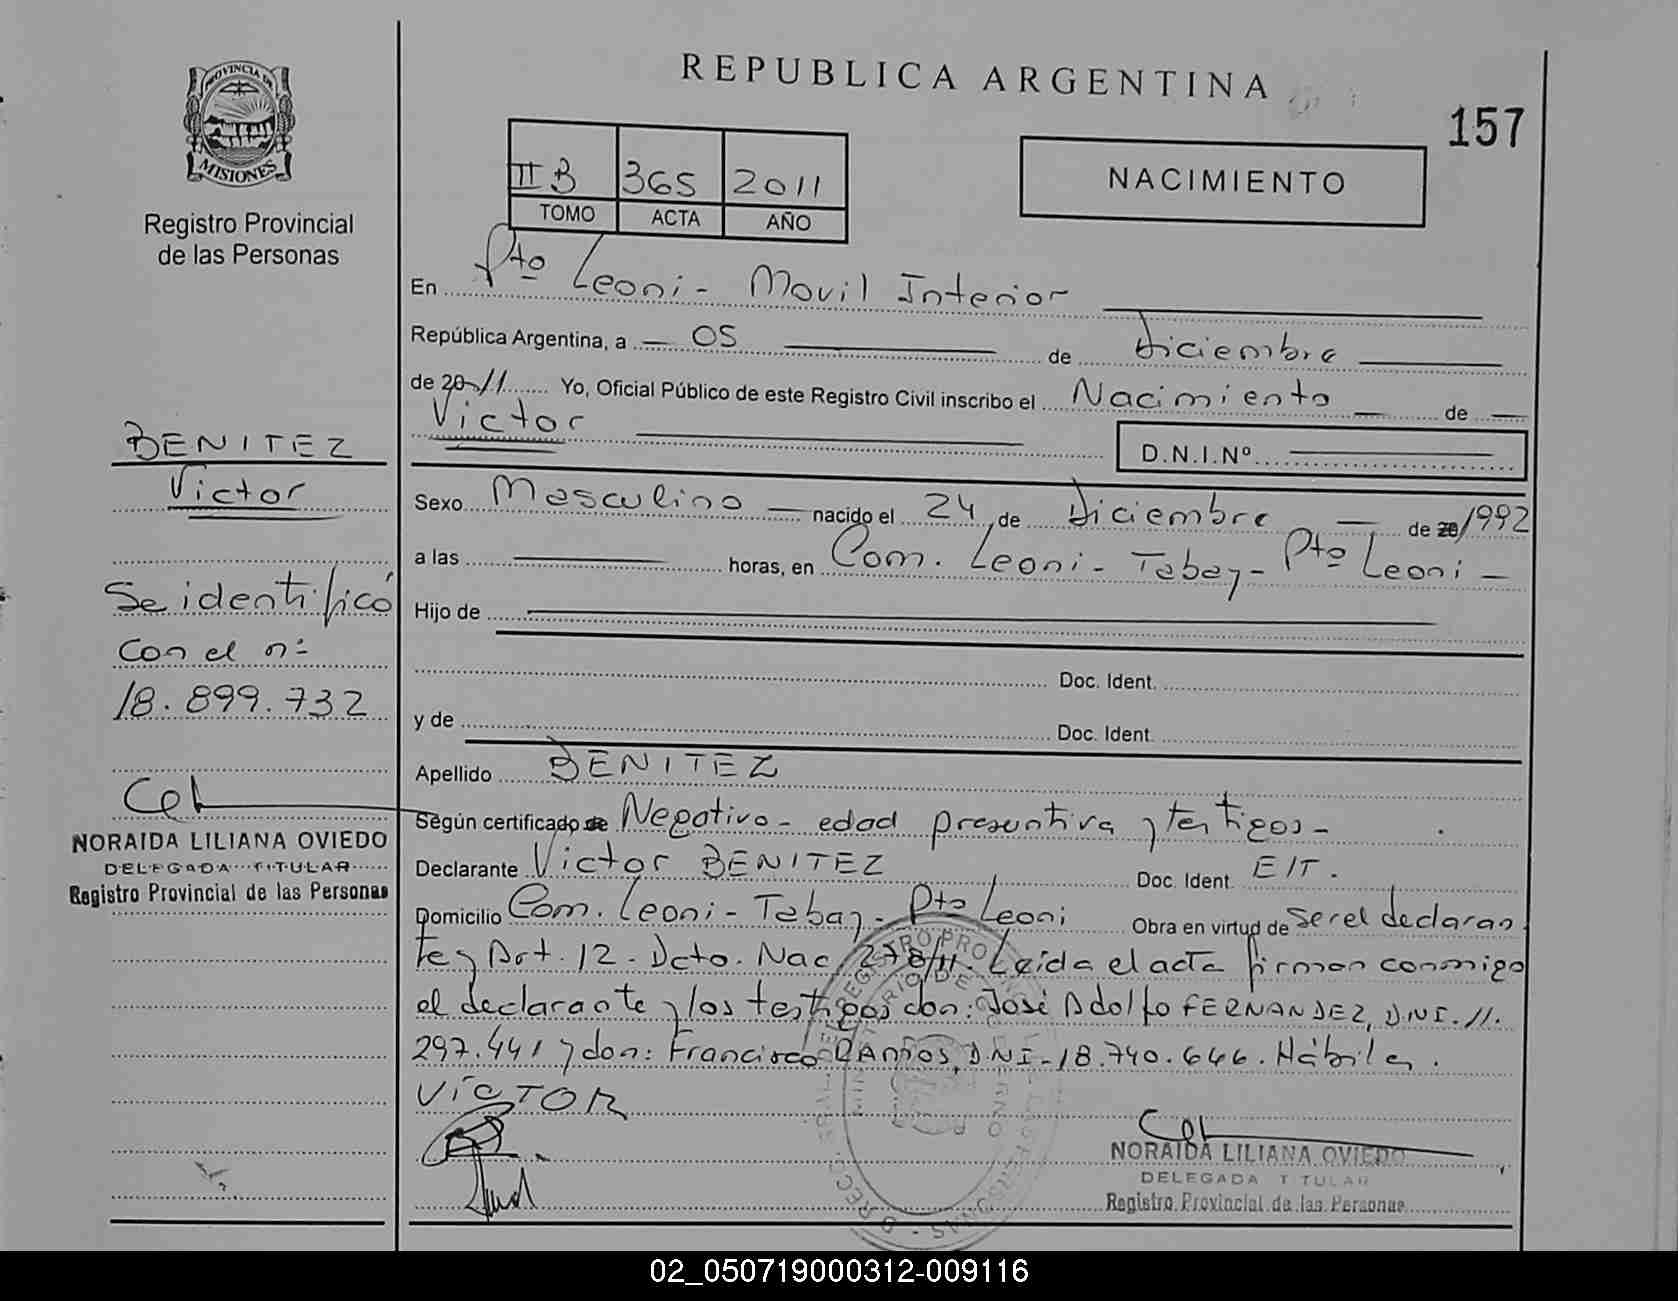 REPUBLICA ARGENTINA
157
PROVINCIA DE
MISIONES
Registro Provincial
de las Personas
II B 365 2011
TOMO ACTA AÑO
NACIMIENTO
En Pto Leoni - Movil Interior
República Argentina, a 05 de Diciembre
de 2011 Yo, Oficial Público de este Registro Civil inscribo el Nacimiento de
Victor
D.N.I.Nº
Sexo Masculino nacido el 24 de Diciembre de 20/1992
a las horas, en Com. Leoni - Tabay - Pto Leoni -
Hijo de
Doc. Ident.
y de
Doc. Ident.
Apellido BENITEZ
Según certificado de Negativo - edad presuntiva y testigos -
Declarante Victor BENITEZ Doc. Ident. E/T.
Domicilio Com. Leoni - Tabay - Pto Leoni Obra en virtud de ser el declaran
te y Art. 12 - Dcto. Nac. 278/11. Leida el acta firman conmigo
el declarante y los testigos don: José Adolfo FERNANDEZ, D.N.I. 11.
297.441 y don: Francisco RAMOS, D.N.I - 18.740.646. Hábiles.
VíCTOR
NORAIDA LILIANA OVIEDO
DELEGADA TITULAR
Registro Provincial de las Personas
BENITEZ
Victor
Se identificó
con el nº
18.899.732
NORAIDA LILIANA OVIEDO
DELEGADA TITULAR
Registro Provincial de las Personas
02_050719000312-009116